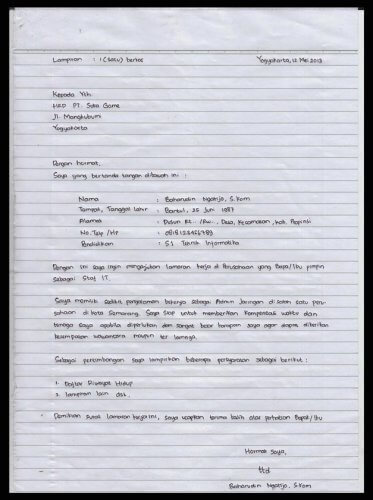 Lampiran : 1 (satu) berkas Yogyakarta, 12 Mei 2013
Kepada Yth.
HRD PT. Suka Game
Jl. Mangkubumi
Yogyakarta
Dengan hormat,
Saya yang bertanda tangan dibawah ini :
Nama : Baharudin Ngatijo, S.Kom
Tempat, Tanggal Lahir : Bantul, 25 Juni 1987
Alamat : Dusun Rt.. /Rw.., Desa, Kecamatan, Kab, Propinsi
No. Telp /HP : 0818123456789
Pendidikan : S1 Teknik Informatika
Dengan ini saya ingin mengajukan lamaran kerja di Perusahaan yang Bapak/Ibu pimpin
sebagai Staf IT.
Saya memiliki sedikit pengalaman bekerja sebagai Admin Jaringan di salah satu peru-
sahaan di kota Semarang. Saya siap untuk memberikan kompensasi waktu dan
tenaga saya apabila diperlukan dan sangat besar harapan saya agar dapat diberikan
kesempatan wawancara maupun tes lainnya.
Sebagai pertimbangan saya lampirkan beberapa persyaratan sebagai berikut :
1. Daftar Riwayat Hidup
2. lampiran lain dsk.
Demikian surat lamaran kerja ini, saya ucapkan terima kasih atas perhatian Bapak/Ibu
Hormat Saya,
ttd
Baharudin Ngatijo, S.Kom